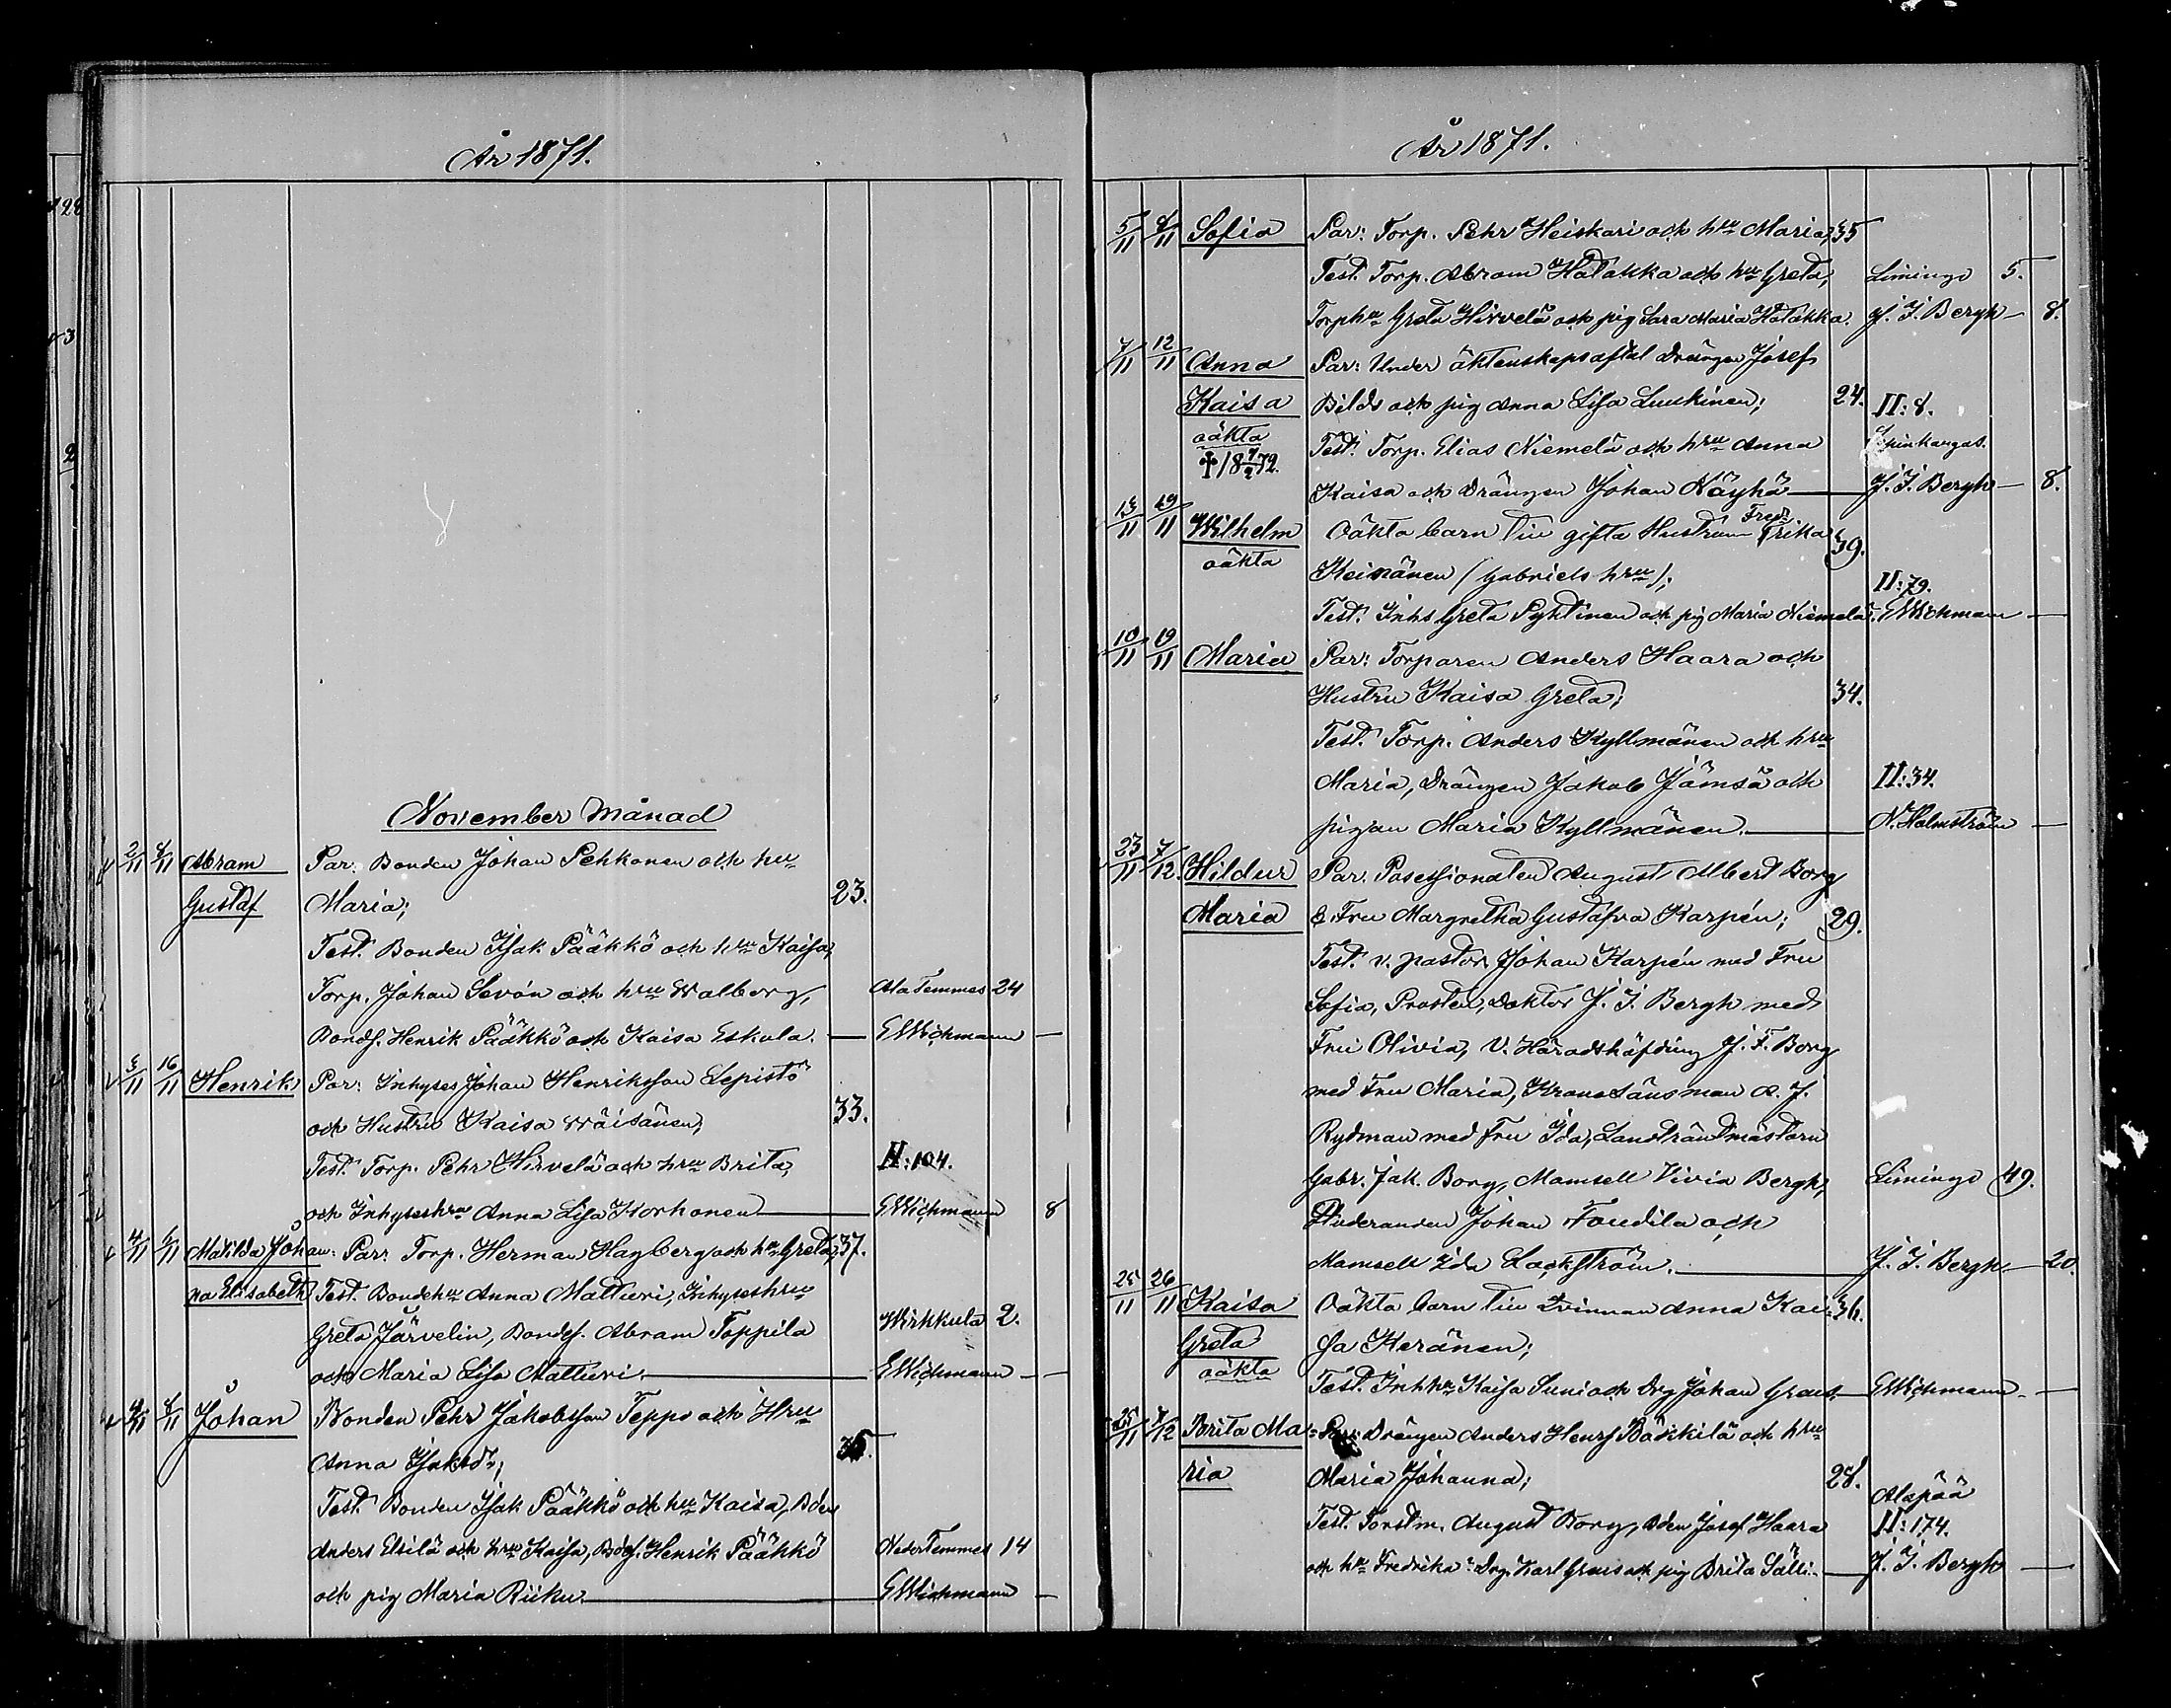 År 1871.
November Månad
2/11 4/11 Abram Par. Bonden Johan Pehkonen och hru
Gustaf Maria; 23.
Test. Bonden Isak Pääkkö och hru Kaisa,
Torp. Johan Sevón och hru Walborg, Ala Temmes 24
Bonds. Henrik Pääkkö och Kaisa Eskola. — E Wichmann —
3/11 16/11 Henrik Par: Inhyses Johan Henriksson Lepistö
och Hustru Kaisa Wäisänen, 33.
Test. Torp. Pehr Hirvelä och hru Brita, II: 104.
och Inhyseshru Anna Lisa Korhonen — E Wichmann 8
4/11 /11 Matilda Johan: Par: Torp. Herman Hagberg och hru Greta, 37.
na Elisabeth Test. Bondehru Anna Mattieri, Inhyseshru
Greta Järvelin, Bondes. Abram Toppila Wirkkula 2.
och Maria Lisa Mattieri. — E Wichmann —
4/11 /11 Johan Bonden Pehr Jakobsson Teppo och Hru
Anna Isaksdr; 35.
Test. Bonden Isak Pääkkö och hru Kaisa, Bden
Anders Eltilä och hru Kaisa, Bds. Henrik Pääkkö Neder Temmes 14
och pig Maria Riiku. — E Wichmann —
År 1871.
5/11 /11 Sofia Par: Torp. Pehr Heiskari och hru Maria, 35
Test. Torp. Abram Hatakka och hru Greta, Limingo 5.
Torphru Greta Hirvelä och pig Sara Maria Hatakka. J. J. Bergh — 8.
7/11 12/11 Anna Par: Under äktenskapsaftal Drängen Josef
Kaisa Bild och pig Anna Lisa Luukinen; 24. II: 8.
oäkta Test. Torp. Elias Niemelä och hru Anna
† 18 7/2 72. Kaisa och Drängen Johan Näyhä — J. J. Bergh — 8.
13/11 19/11 Wilhelm Oäkta barn till gifta Hustrun Fredrika 39.
oäkta Keinänen (Gabriels hru); II: 79.
Test. Inhs Greta Pyktinen och pig Maria Niemelä. E Wichmann —
10/11 19/11 Maria Par: Torparen Anders Haara och
Hustru Kaisa Greta; 34.
Test. Torp. Anders Kyllmänen och hru
Maria, Drängen Jakob Jämsä och II: 34.
pigan Maria Kyllmänen. — N. Holmström —
23/11 7/12. Hildur Par. Posessionaten August Albert Borg
Maria & Fru Margretha Gustafva Karpén; 29.
Test. v. pastor Johan Karpén med Fru
Sofia, Prosten, Doktor J. J. Bergh med
Fru Olivia, V. Häradshöfding J. F. Borg
med Fru Maria, Kronolänsman A. J.
Rydman med Fru Ida, Landträntmästaren
Gabr. Jak. Borg, Mamsell Vivia Bergh, Limingo 49.
Studeranden Johan Foudila och
Mamsell Ida Lackström. — J. J. Bergh — 20.
25/11 26/11 Kaisa Oäkta barn till Qvinnan Anna Kai- 36.
Greta sa Keränen;
oäkta Test. Inhhru Kaisa Suni och Drg Johan Graus. — E Wichmann. —
25/11 7/12 Brita Ma= Par: Drängen Anders Henrs Bäkkilä och hru
ria Maria Johanna; 28. Alapää
Test. Forstm. August Borg, Bden Josef Haara II: 174.
och hru Fredrika: Drg. Karl Graus och pig Brita Sälli. — J. J. Bergh —